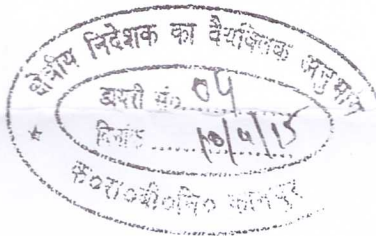 क्षेत्रीय निदेशक का वैयक्तिक अनुभाग
डायरी सं० 04
दिनांक 10/4/15
क०रा०बी०नि० कानपुर